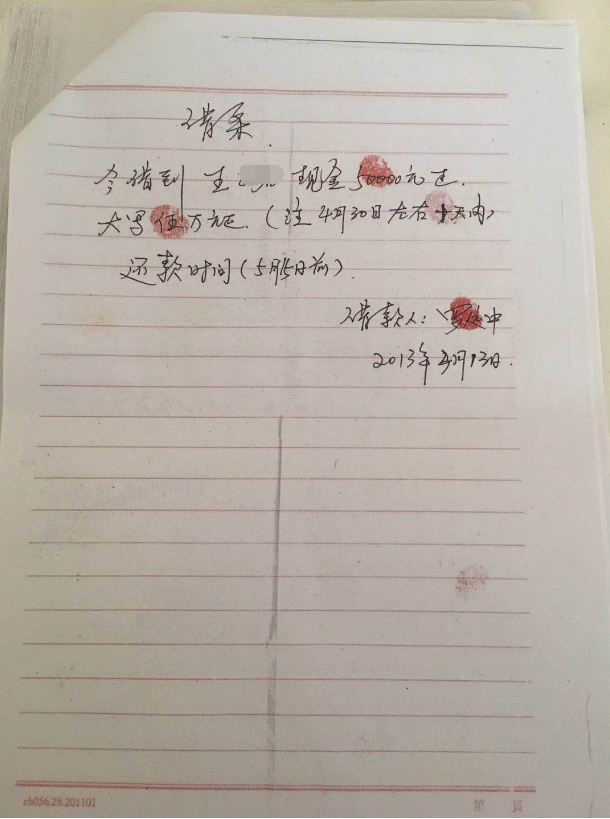 借条
今借到 王 现金50000元正.
大写伍万元正.(注4月30日左右十天内)
还款时间(5月15日前).
借款人: 罗 中
2013年4月13日.
ch056.28.201101
第 页